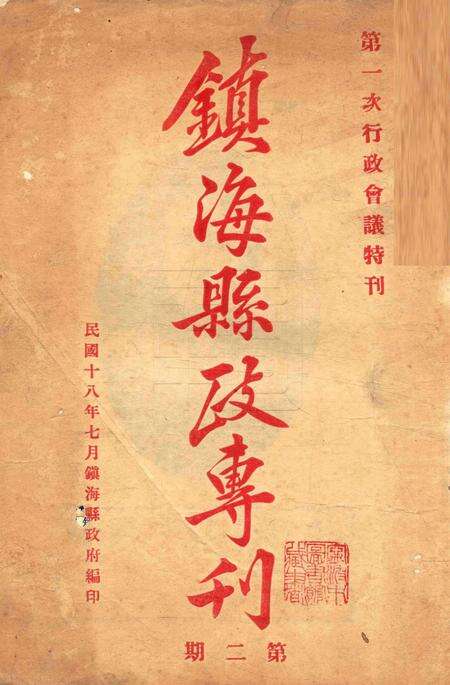 第一次行政會議特刊
鎮海縣政專刊
第二期
民國十八年七月鎮海縣政府編印